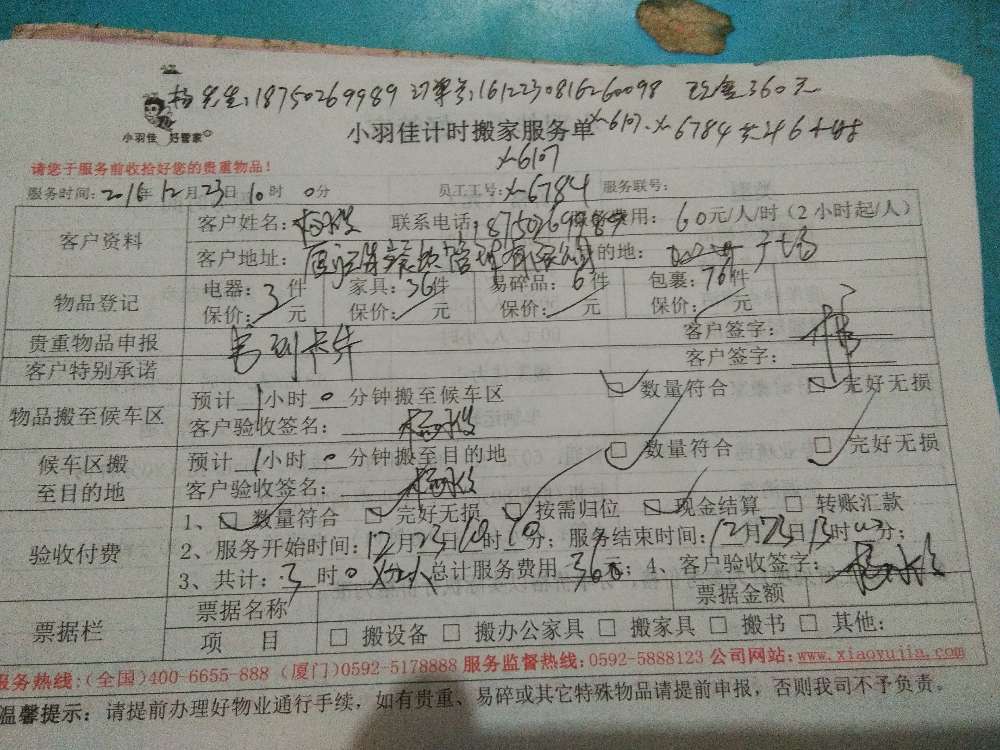 杨先生:18750269989 订单号:1612230816260098 现金360元
小羽佳 好管家
小羽佳计时搬家服务单 X-6107、X-6784 共46
X-6107
请您于服务前收拾好您的贵重物品!
服务时间:2016年12月23日10时0分 员工工号:X-6784 服务联号:
客户资料 客户姓名: 联系电话: 费用: 60元/人/时(2小时起/人)
客户地址: 目的地: 广场
物品登记 电器:3件 家具:36件 易碎品:6件 包裹:76件
保价: 元 保价: 元 保价: 元 保价: 元
贵重物品申报 客户签字:
客户特别承诺 客户签字:
物品搬至候车区 预计1小时0分钟搬至候车区 ☑数量符合 ☑完好无损
客户验收签名:
候车区搬至目的地 预计1小时0分钟搬至目的地 ☑数量符合 ☑完好无损
客户验收签名:
验收付费 1、☑数量符合 ☑完好无损 ☑按需归位 ☑现金结算 □转账汇款
2、服务开始时间:12月23日10时10分;服务结束时间:12月23日13时 分;
3、共计:3时0 总计服务费用360元;4、客户验收签字:
票据栏 票据名称 票据金额
项目 □搬设备 □搬办公家具 □搬家具 □搬书 □其他:
服务热线:(全国)400-6655-888 (厦门)0592-5178888 服务监督热线:0592-5888123 公司网站:www.xiaoyujia.com
温馨提示:请提前办理好物业通行手续,如有贵重、易碎或其它特殊物品请提前申报,否则我司不予负责。